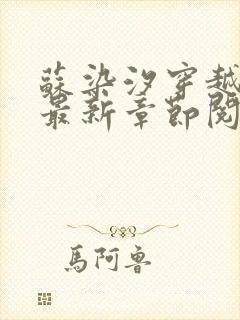 蘇染汐穿越
最新章節閱
馬阿魯